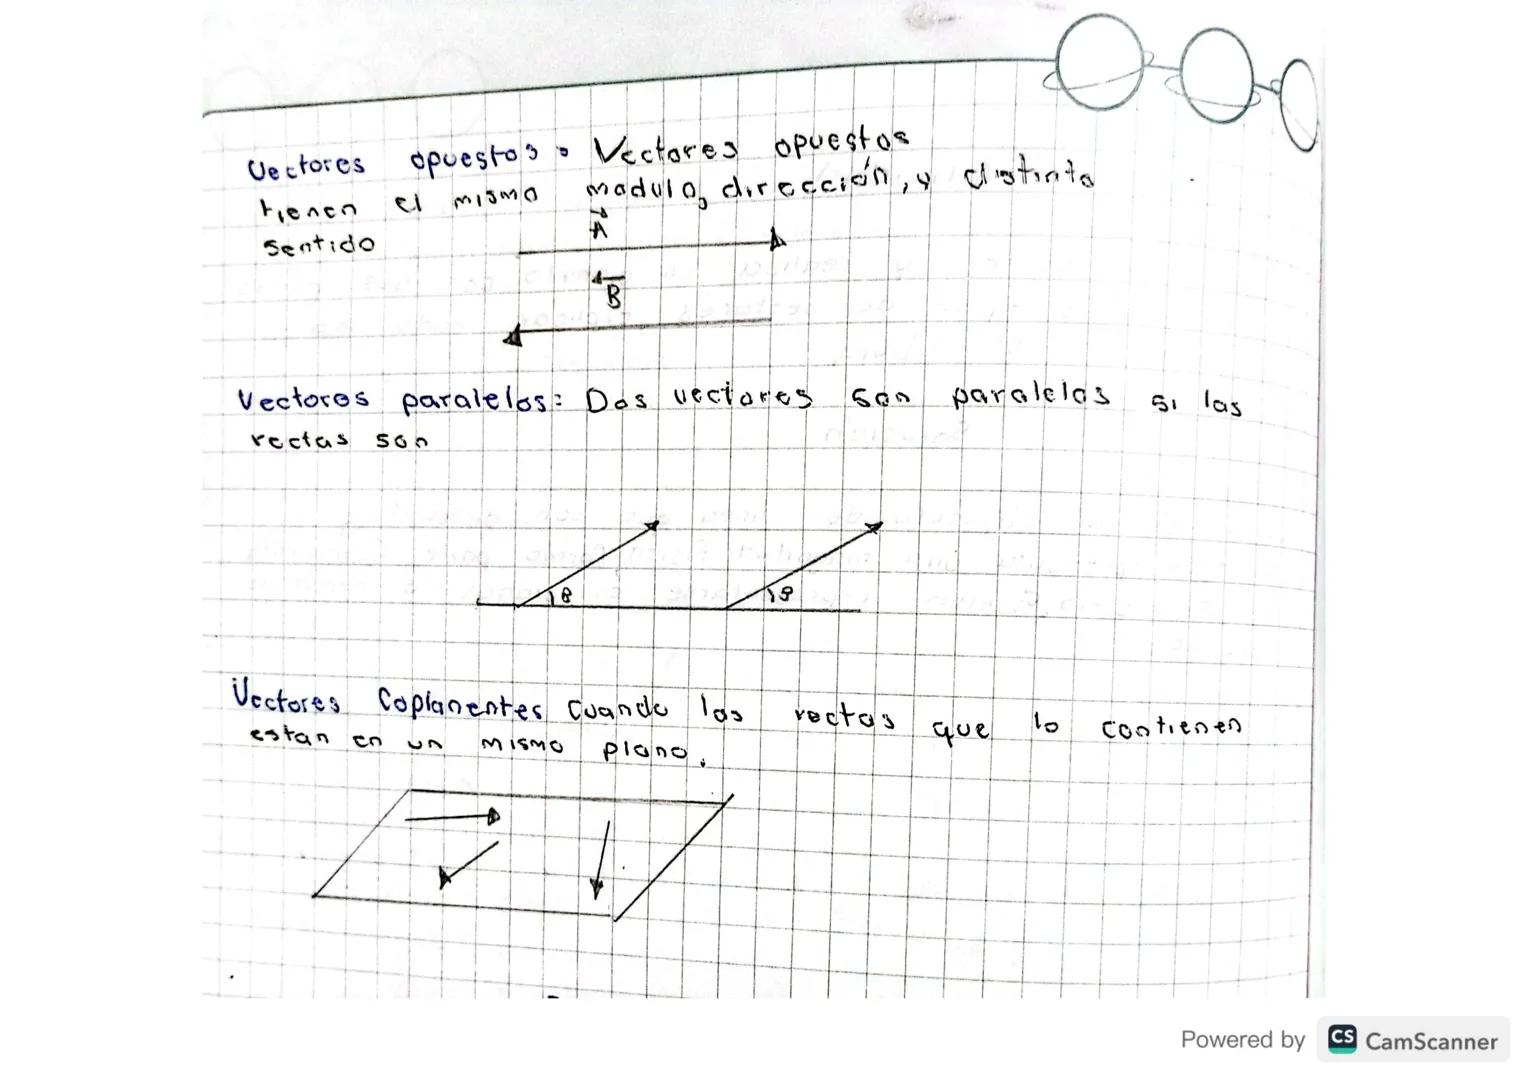 Vectores opuestos: Vectores opuestos
tienen el mismo modulo, dirección, y distinto
sentido
A
B
Vectores paralelos: Dos vectores son paralelos si las
rectas son
θ θ
Vectores Coplanentes cuando las rectas que lo contienen
estan en un mismo plano.
Powered by CS CamScanner